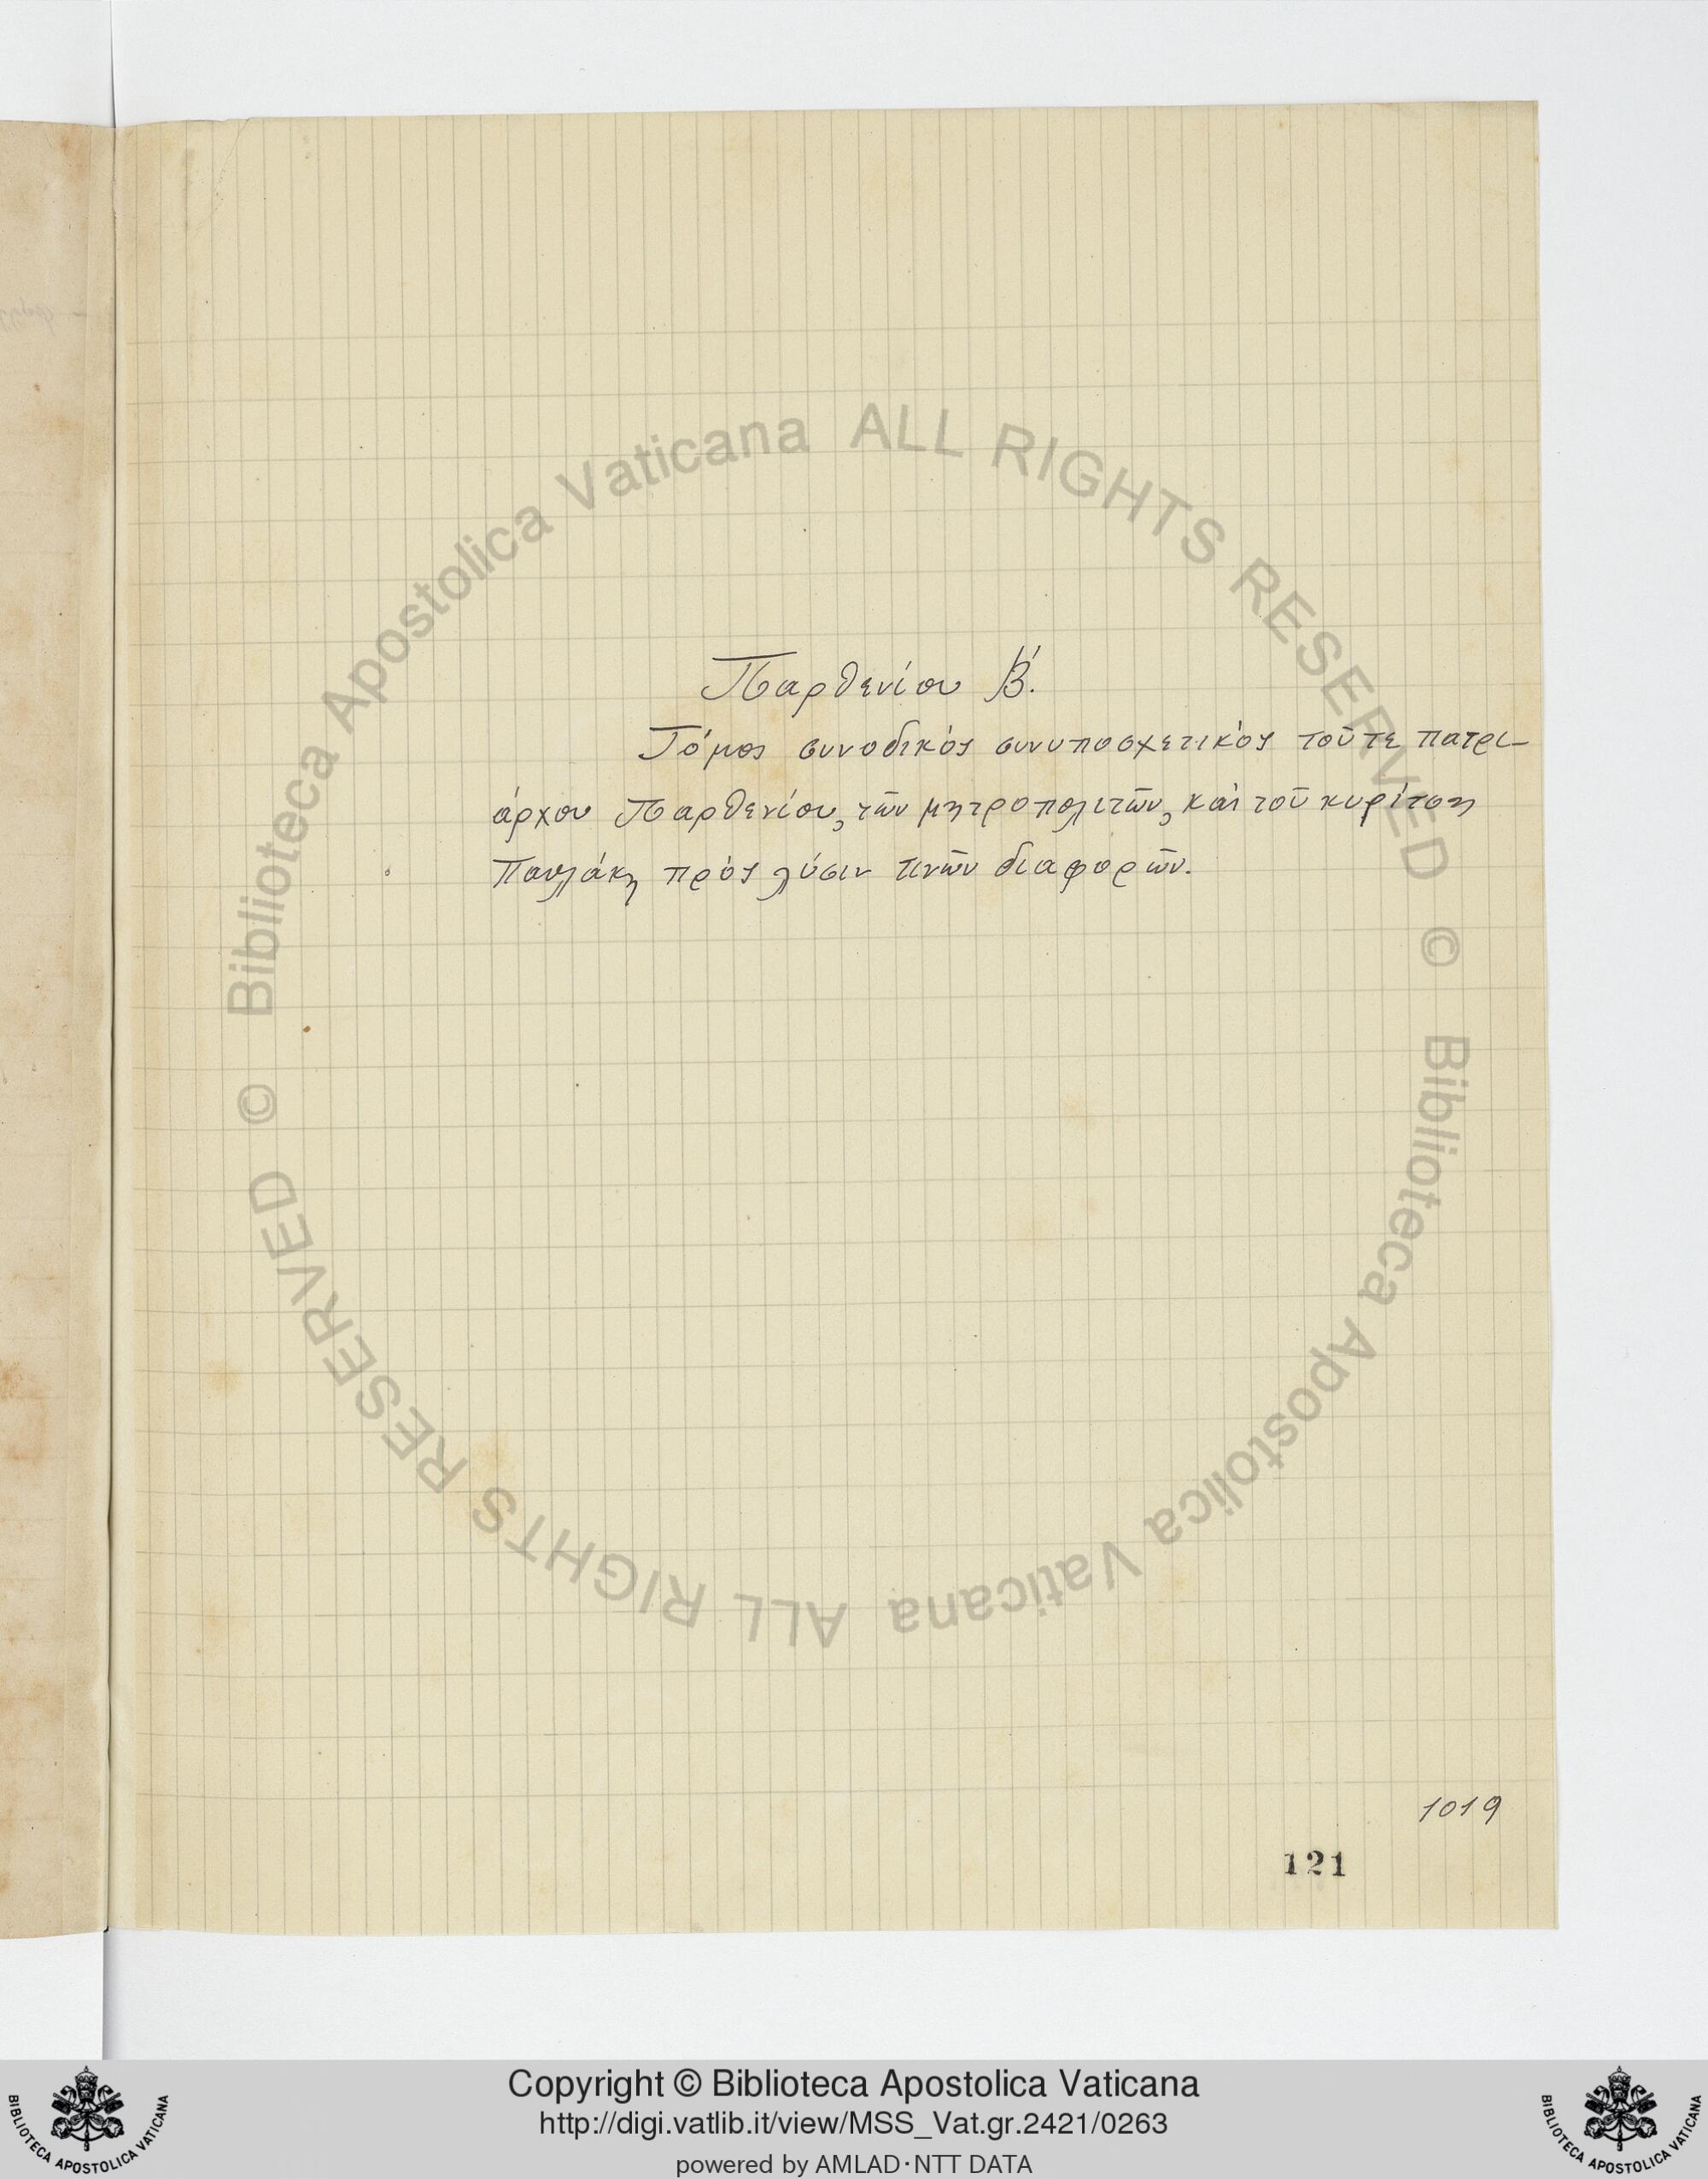 Παρθενίου Β΄.
Τόμος συνοδικὸς συνυποσχετικὸς τοῦ τε πατρι-
άρχου Παρθενίου, τῶν μητροπολιτῶν, καὶ τοῦ κυρίτση
Παυλάκη πρὸς λύσιν τινῶν διαφορῶν.
1019
121
© Biblioteca Apostolica Vaticana ALL RIGHTS RESERVED
© Biblioteca Apostolica Vaticana ALL RIGHTS RESERVED
BIBLIOTECA APOSTOLICA VATICANA
Copyright © Biblioteca Apostolica Vaticana
http://digi.vatlib.it/view/MSS_Vat.gr.2421/0263
powered by AMLAD·NTT DATA
BIBLIOTECA APOSTOLICA VATICANA